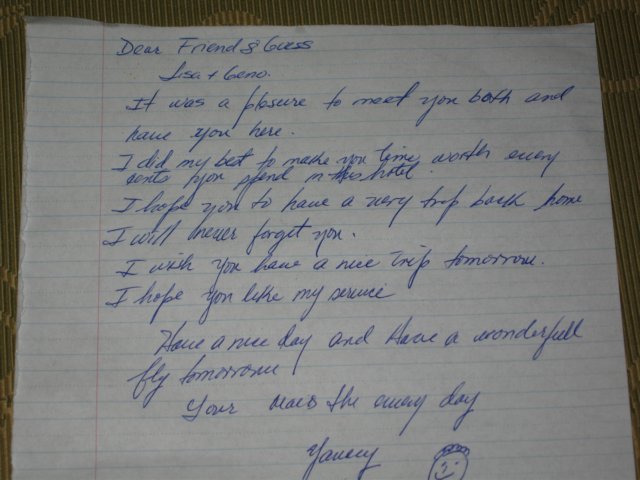 Dear Friend & Guess
Lisa + Geno.
It was a plesure to meet you both and
have you here.
I did my best to make you time worth every
cents you spend in this hotel.
I hope you to have a very trip back home
I will never forget you.
I wish you have a nice trip tomorrow.
I hope you like my service
Have a nice day and Have a wonderfull
fly tomorrow
Your the every day
Yancey